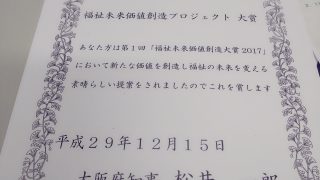 福祉未来価値創造プロジェクト 大賞
あなた方は第1回「福祉未来価値創造大賞2017」
において新たな価値を創造し福祉の未来を変える
素晴らしい提案をされましたのでこれを賞します
平成29年12月15日
大阪府知事 松井 一郎